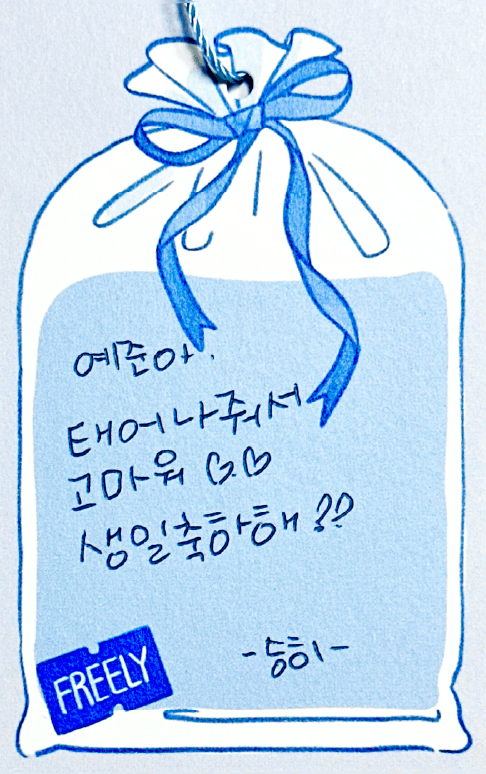 예준아.
태어나줘서
고마워 ♡♡
생일축하해 ??
-승희-
FREELY